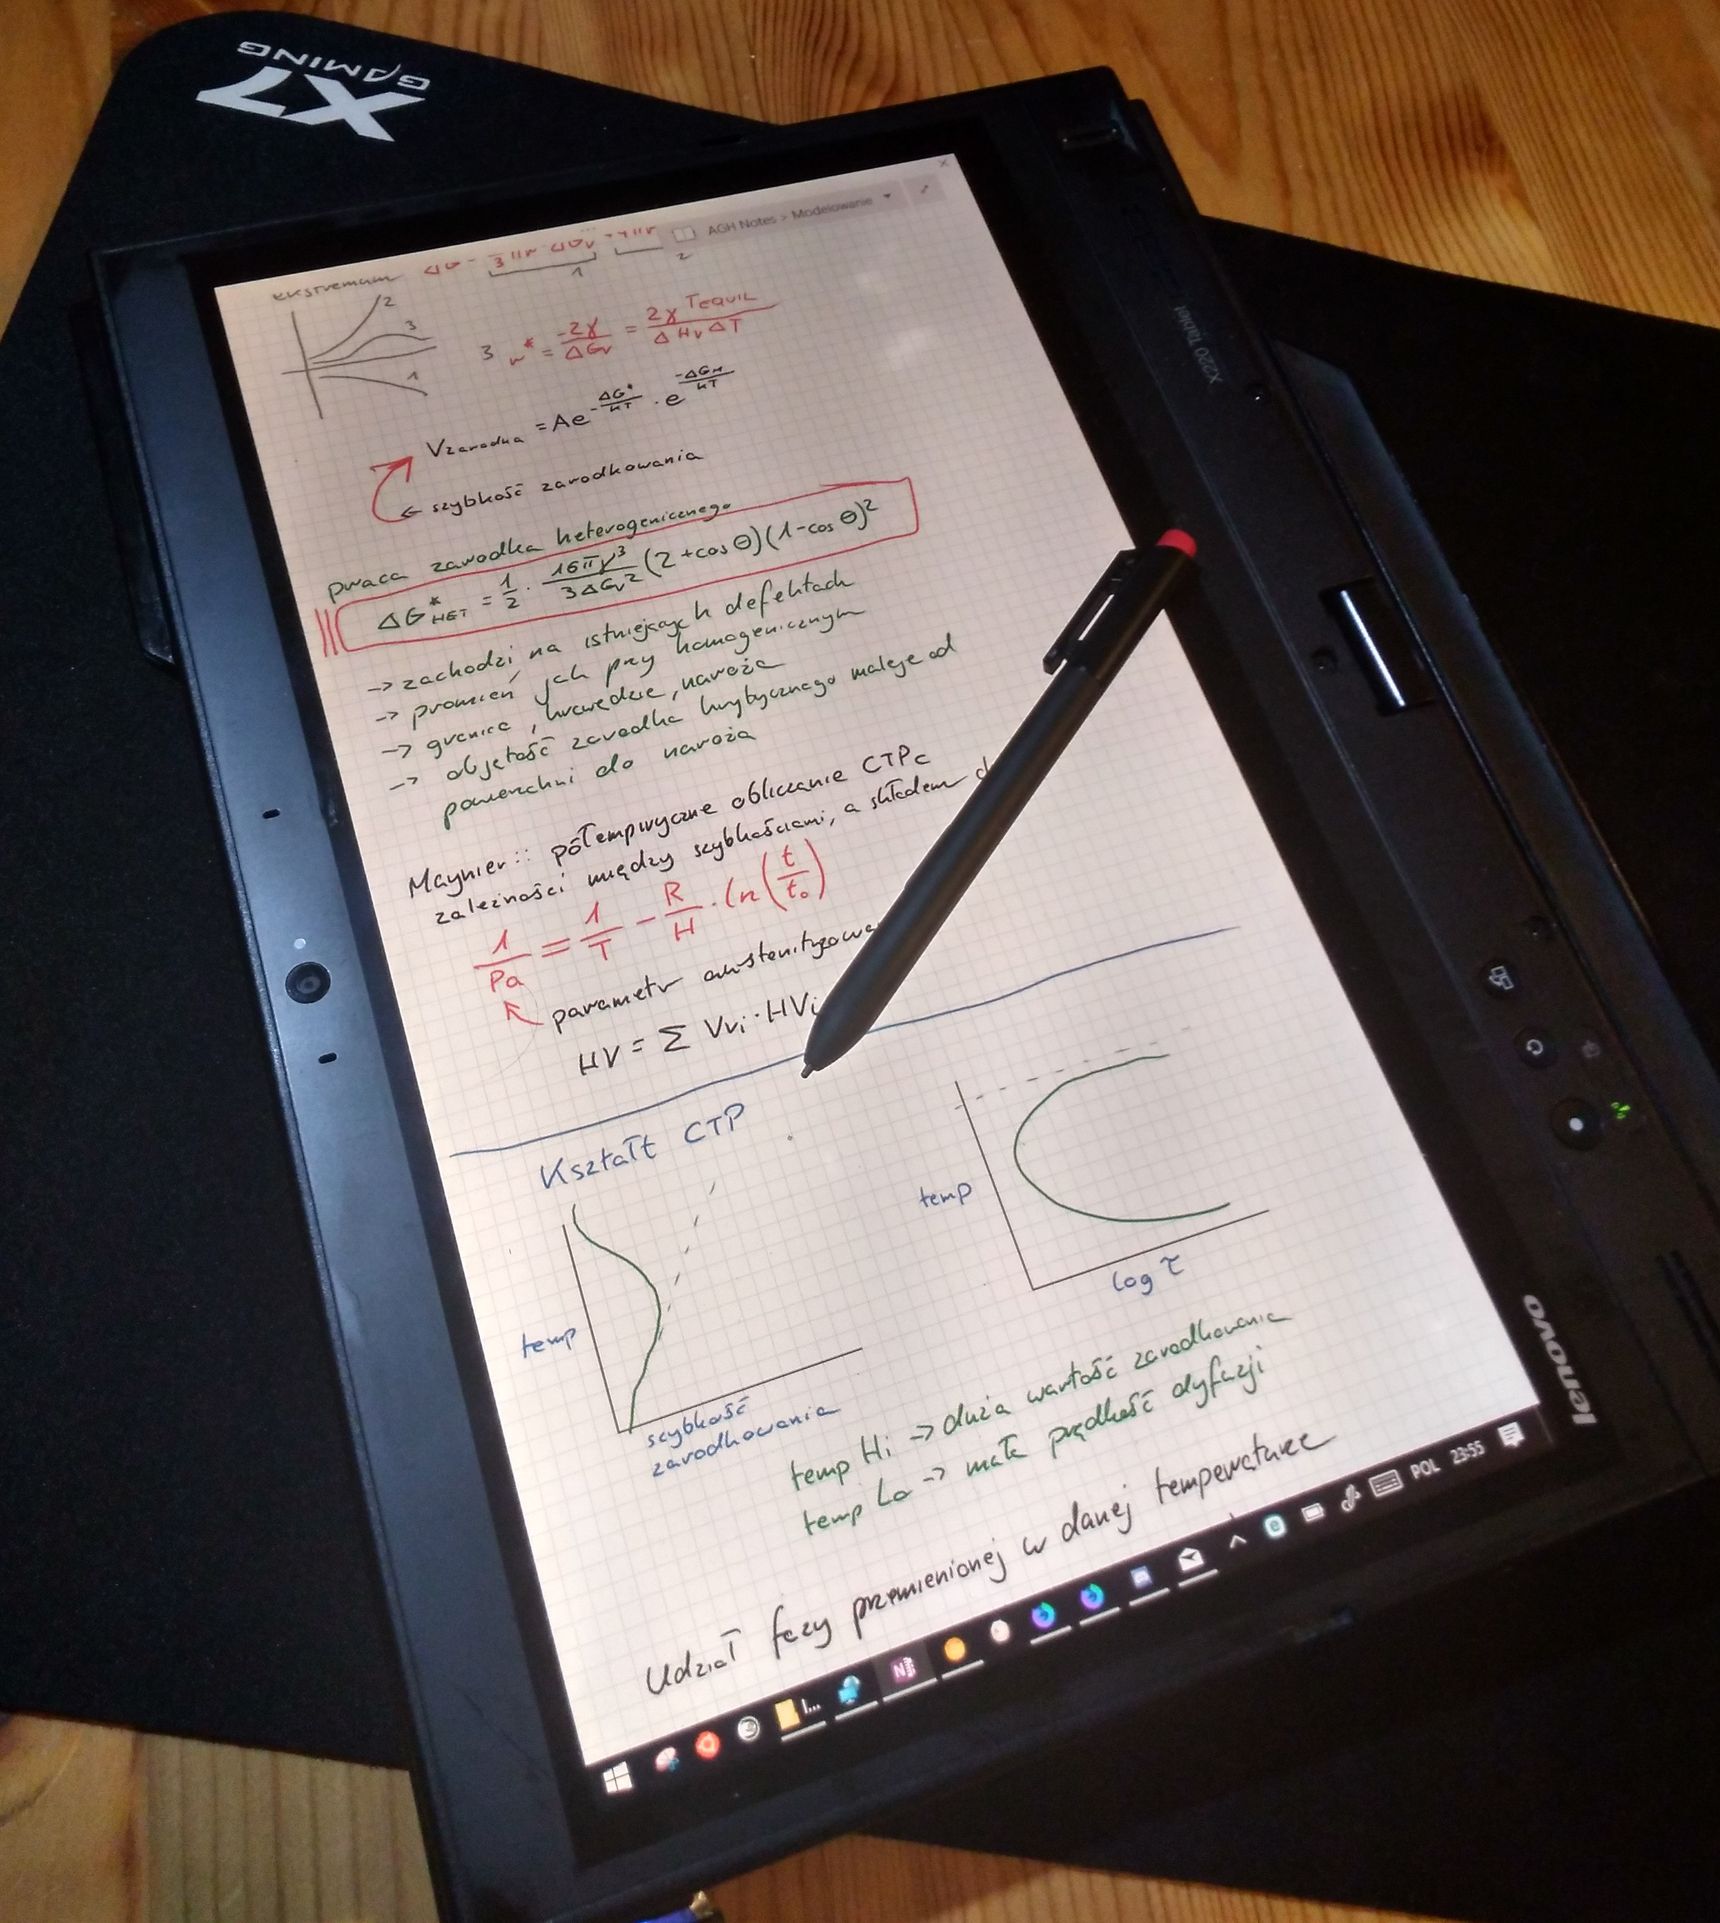 X7
GAMING
AGH Notes > Modelowanie
ekstremum
1
2
2
3
1
3 r* = -2γ/ΔGv = 2γ TEQUIL/ΔHvΔT
Vzarodka = Ae^(-ΔG*/kT) · e^(-ΔGM/kT)
← szybkość zarodkowania
praca zarodka heterogenicznego
ΔG*HET = 1/2 · 16πγ³/3ΔGv² (2+cos Θ)(1-cos Θ)²
→ zachodzi na istniejących defektach
→ promień jak przy homogenicznym
→ granice, krawędzie, naroża
→ objętość zarodka krytycznego maleje od
powierzchni do naroża
Maynier:: półempiryczne obliczanie CTPc
zależności między szybkościami, a składem
1/Pa = 1/T - R/H · ln(t/t₀)
parametr
HV = Σ Vvi · HVi
Kształt CTP
temp
szybkość
zarodkowania
temp
log τ
temp Hi → duża wartość zarodkowania
temp Lo → mała prędkość dyfuzji
Udział fazy przemienionej w danej temperaturze
POL 23:55
X220 Tablet
lenovo